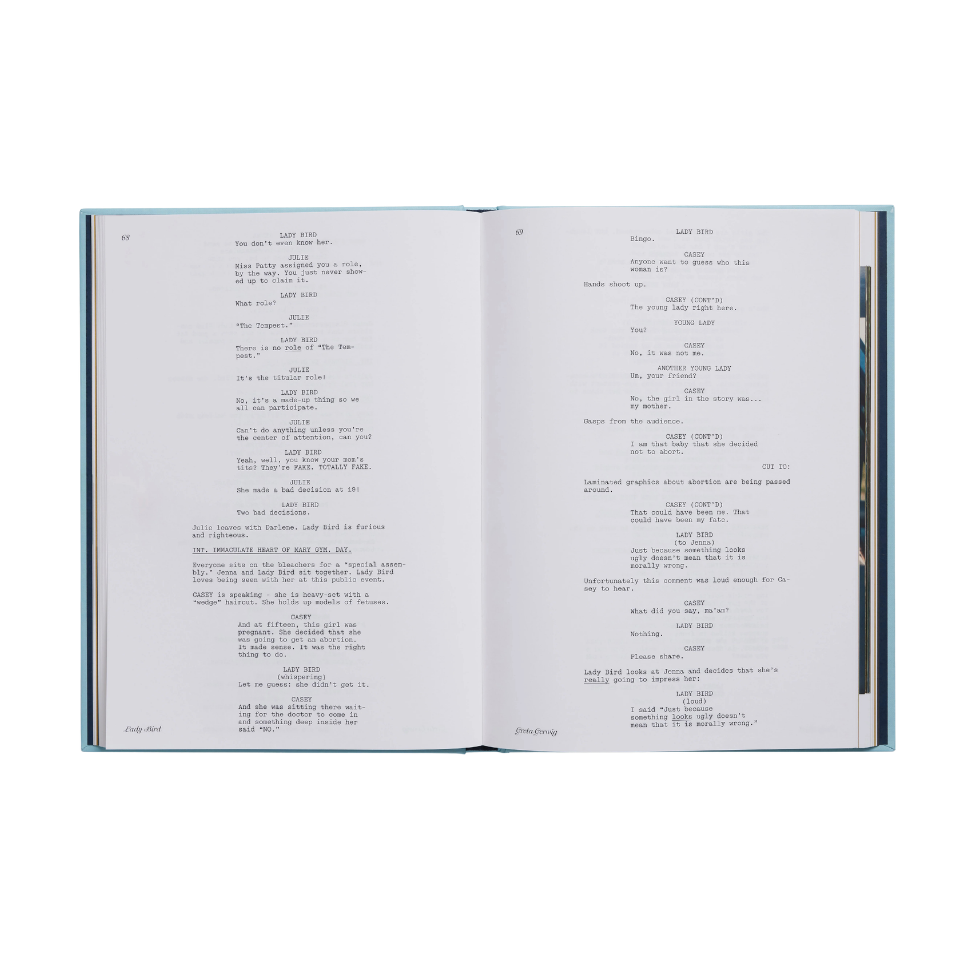 68
LADY BIRD
You don't even know her.
JULIE
Miss Patty assigned you a role,
by the way. You just never show-
ed up to claim it.
LADY BIRD
What role?
JULIE
"The Tempest."
LADY BIRD
There is no role of "The Tem-
pest."
JULIE
It's the titular role!
LADY BIRD
No, it's a made-up thing so we
all can participate.
JULIE
Can't do anything unless you're
the center of attention, can you?
LADY BIRD
Yeah, well, you know your mom's
tits? They're FAKE. TOTALLY FAKE.
JULIE
She made a bad decision at 19!
LADY BIRD
Two bad decisions.
Julie leaves with Darlene. Lady Bird is furious
and righteous.
INT. IMMACULATE HEART OF MARY GYM. DAY.
Everyone sits on the bleachers for a "special assem-
bly." Jenna and Lady Bird sit together. Lady Bird
loves being seen with her at this public event.
CASEY is speaking - she is heavy-set with a
"wedge" haircut. She holds up models of fetuses.
CASEY
And at fifteen, this girl was
pregnant. She decided that she
was going to get an abortion.
It made sense. It was the right
thing to do.
LADY BIRD
(whispering)
Let me guess: she didn't get it.
CASEY
And she was sitting there wait-
ing for the doctor to come in
and something deep inside her
said "NO."
Lady Bird
69
LADY BIRD
Bingo.
CASEY
Anyone want to guess who this
woman is?
Hands shoot up.
CASEY (CONT'D)
The young lady right here.
YOUNG LADY
You?
CASEY
No, it was not me.
ANOTHER YOUNG LADY
Um, your friend?
CASEY
No, the girl in the story was...
my mother.
Gasps from the audience.
CASEY (CONT'D)
I am that baby that she decided
not to abort.
CUT TO:
Laminated graphics about abortion are being passed
around.
CASEY (CONT'D)
That could have been me. That
could have been my fate.
LADY BIRD
(to Jenna)
Just because something looks
ugly doesn't mean that it is
morally wrong.
Unfortunately this comment was loud enough for Ca-
sey to hear.
CASEY
What did you say, ma'am?
LADY BIRD
Nothing.
CASEY
Please share.
Lady Bird looks at Jenna and decides that she's
really going to impress her:
LADY BIRD
(loud)
I said "Just because
something looks ugly doesn't
mean that it is morally wrong."
Greta Gerwig